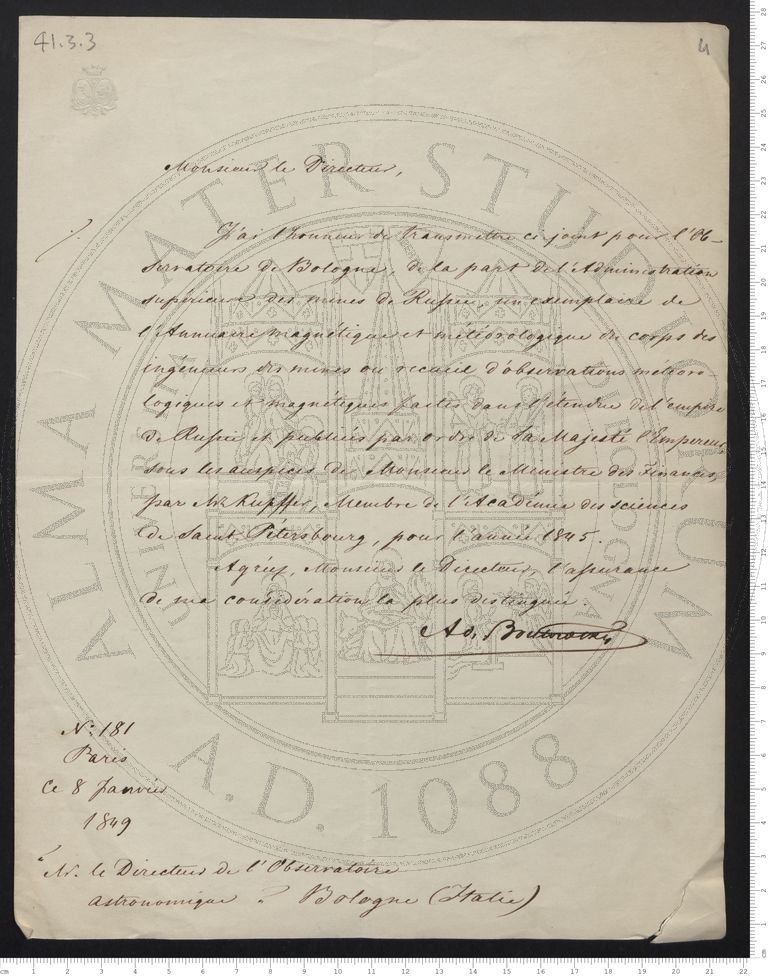 41.3.3
4
Monsieur le Directeur,
J'ai l'honneur de transmettre ci-joint pour l'Ob-
servatoire de Bologne, de la part de l'Administration
supérieure des mines de Russie, un exemplaire de
l'Annuaire magnétique et météorologique du corps des
ingénieurs des mines ou recueil d'observations météoro
logiques et magnétiques faites dans l'étendue de l'empire
de Russie et publiées par ordre de Sa Majesté l'Empereur
sous les auspices de Monsieur le Ministre des Finances,
par Mr Kupffer, Membre de l'Académie des sciences
de Saint Pétersbourg, pour l'année 1845.
Agréez, Monsieur le Directeur, l'assurance
de ma considération la plus distinguée.
Ad.
N: 181
Paris
Ce 8 Janvier
1849
M. le Directeur de l'Observatoire
astronomique à Bologne (Italie)
ALMA MATER STUDIORUM
A.D. 1088